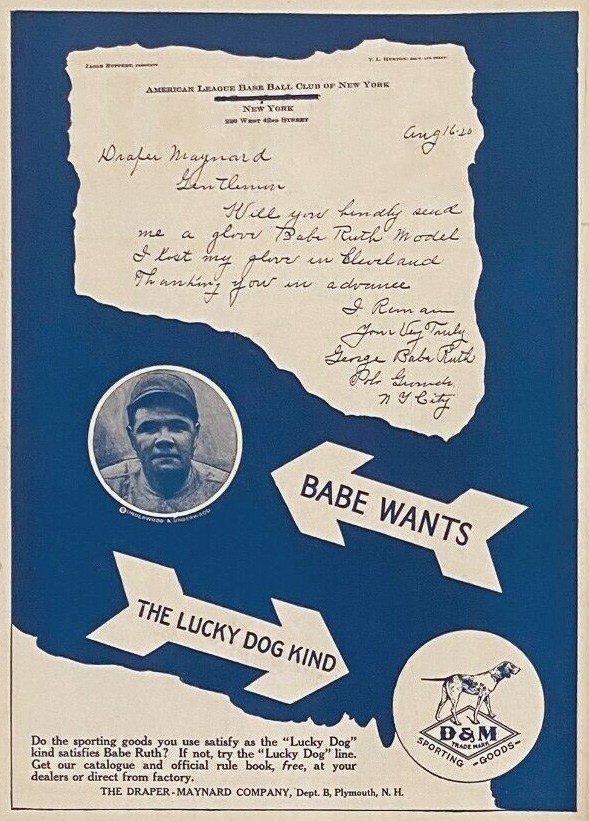 JACOB RUPPERT, PRESIDENT
T. L. HUSTON, SEC'Y AND TREAS.
AMERICAN LEAGUE BASE BALL CLUB OF NEW YORK
NEW YORK
226 WEST 42ND STREET
Aug 16-20
Draper Maynard
Gentlemen
Will you kindly send
me a glove Babe Ruth Model
I lost my glove in Cleveland
Thanking you in advance
I Remain
Your Very Truly
George Babe Ruth
Polo Grounds
N Y City
© UNDERWOOD & UNDERWOOD
BABE WANTS
THE LUCKY DOG KIND
D&M
TRADE MARK
SPORTING -GOODS-
Do the sporting goods you use satisfy as the "Lucky Dog"
kind satisfies Babe Ruth? If not, try the "Lucky Dog" line.
Get our catalogue and official rule book, free, at your
dealers or direct from factory.
THE DRAPER-MAYNARD COMPANY, Dept. B, Plymouth, N. H.